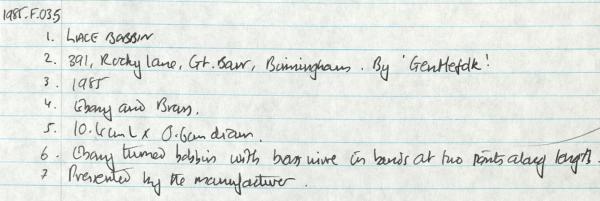 1985.F.035
1. LACE BOBBIN
2. 391, Rocky lane, Gt. Barr, Birmingham. By 'Gentlefolk'.
3. 1985
4. Ebony and Brass.
5. 10.4cm L x 0.6cm diam.
6. Ebony turned bobbin with brass wire in bands at two points along length.
7 Presented by the manufacturer.